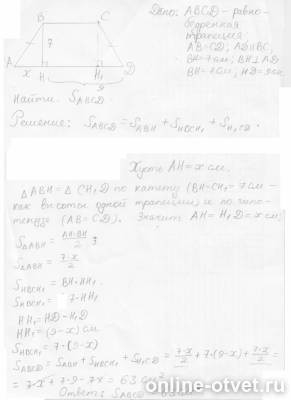 B C
7
A x H H₁ D
9
Дано: ABCD – равно-
бедренная
трапеция
AB=CD; AD||BC,
BH=7см; BH⊥AD
BH=7см, HD=9см.
Найти: S_ABCD
Решение: S_ABCD = S_ABH + S_HBCH₁ + S_H₁CD.
Пусть AH=x см.
△ABH=△CH₁D по катету (BH=CH₁=7см –
как высоты одной трапеции) и по гипо-
тенузе (AB=CD). Значит AH=H₁D=x см;
S△ABH = AH·BH/2 ;
S△ABH = 7·x/2
S_HBCH₁ = BH·HH₁.
S_HBCH₁ = 7·HH₁
HH₁=HD-H₁D
HH₁=(9-x)см
S_HBCH₁ = 7·(9-x)
S_ABCD = S_ABH + S_HBCH₁ + S_H₁CD = 7·x/2 + 7·(9-x) + 7·x/2 =
=7·x+7·9-7x = 63 см²
Ответ: S_ABCD = 63
online-otvet.ru